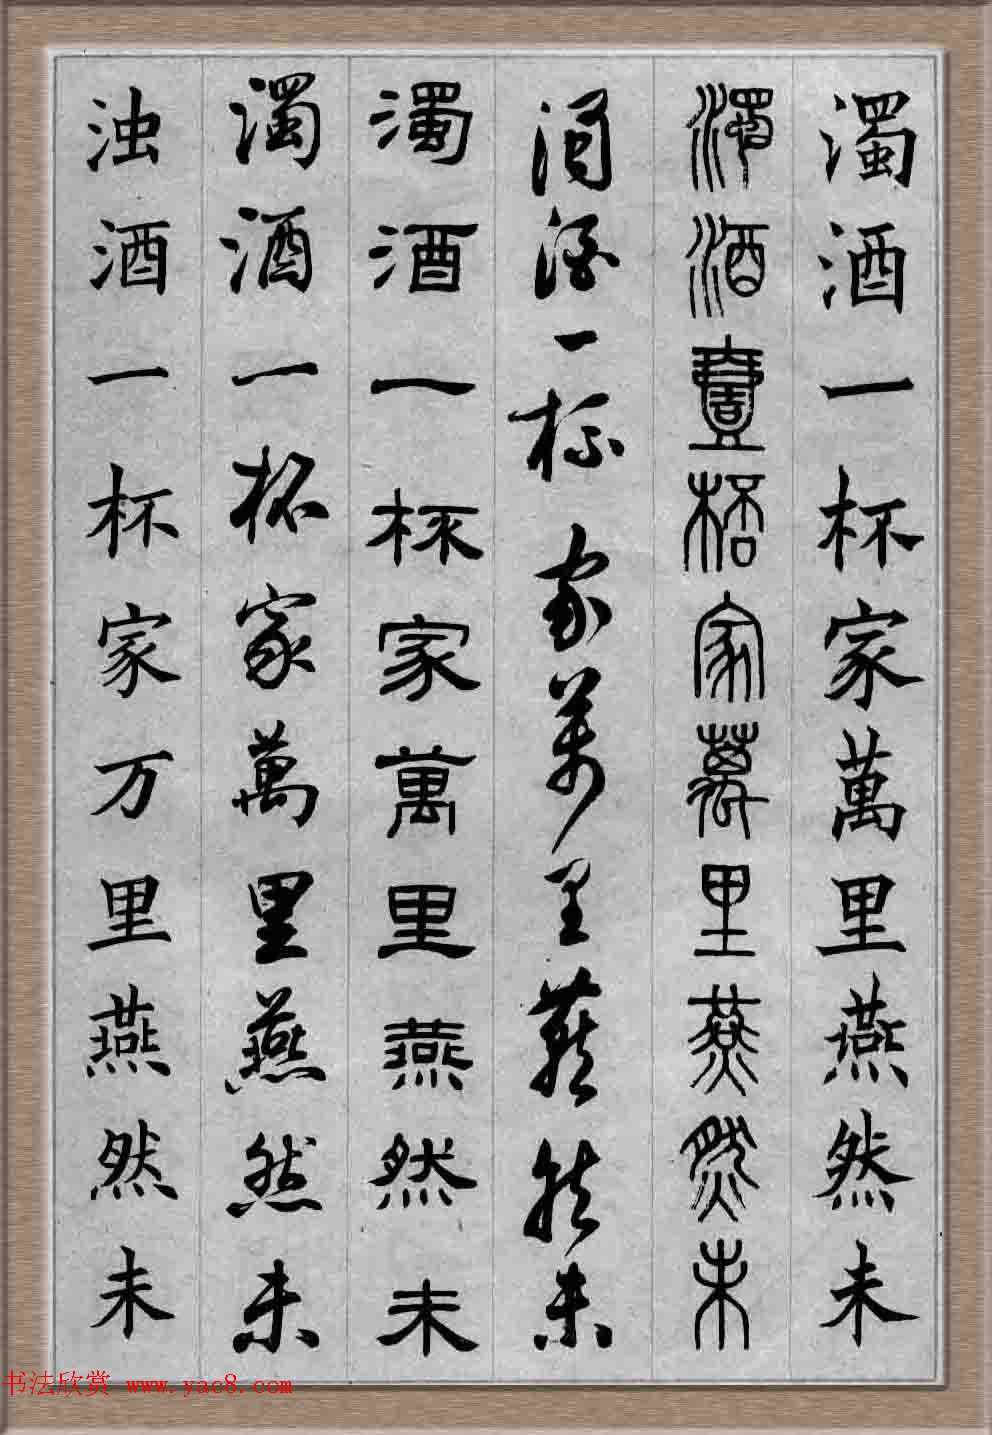 濁酒一杯家萬里燕然未
濁酒壹桮家萬里燕然未
濁酒一杯家萬里燕然未
濁酒一杯家萬里燕然未
濁酒一杯家萬里燕然未
浊酒一杯家万里燕然未
书法欣赏 www.yac8.com